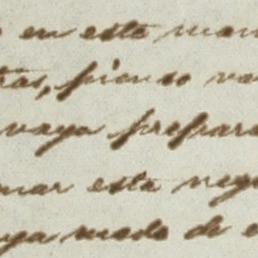 en este man
tras, pienso va
vaya prepara
mar esta nego
ya modo de e